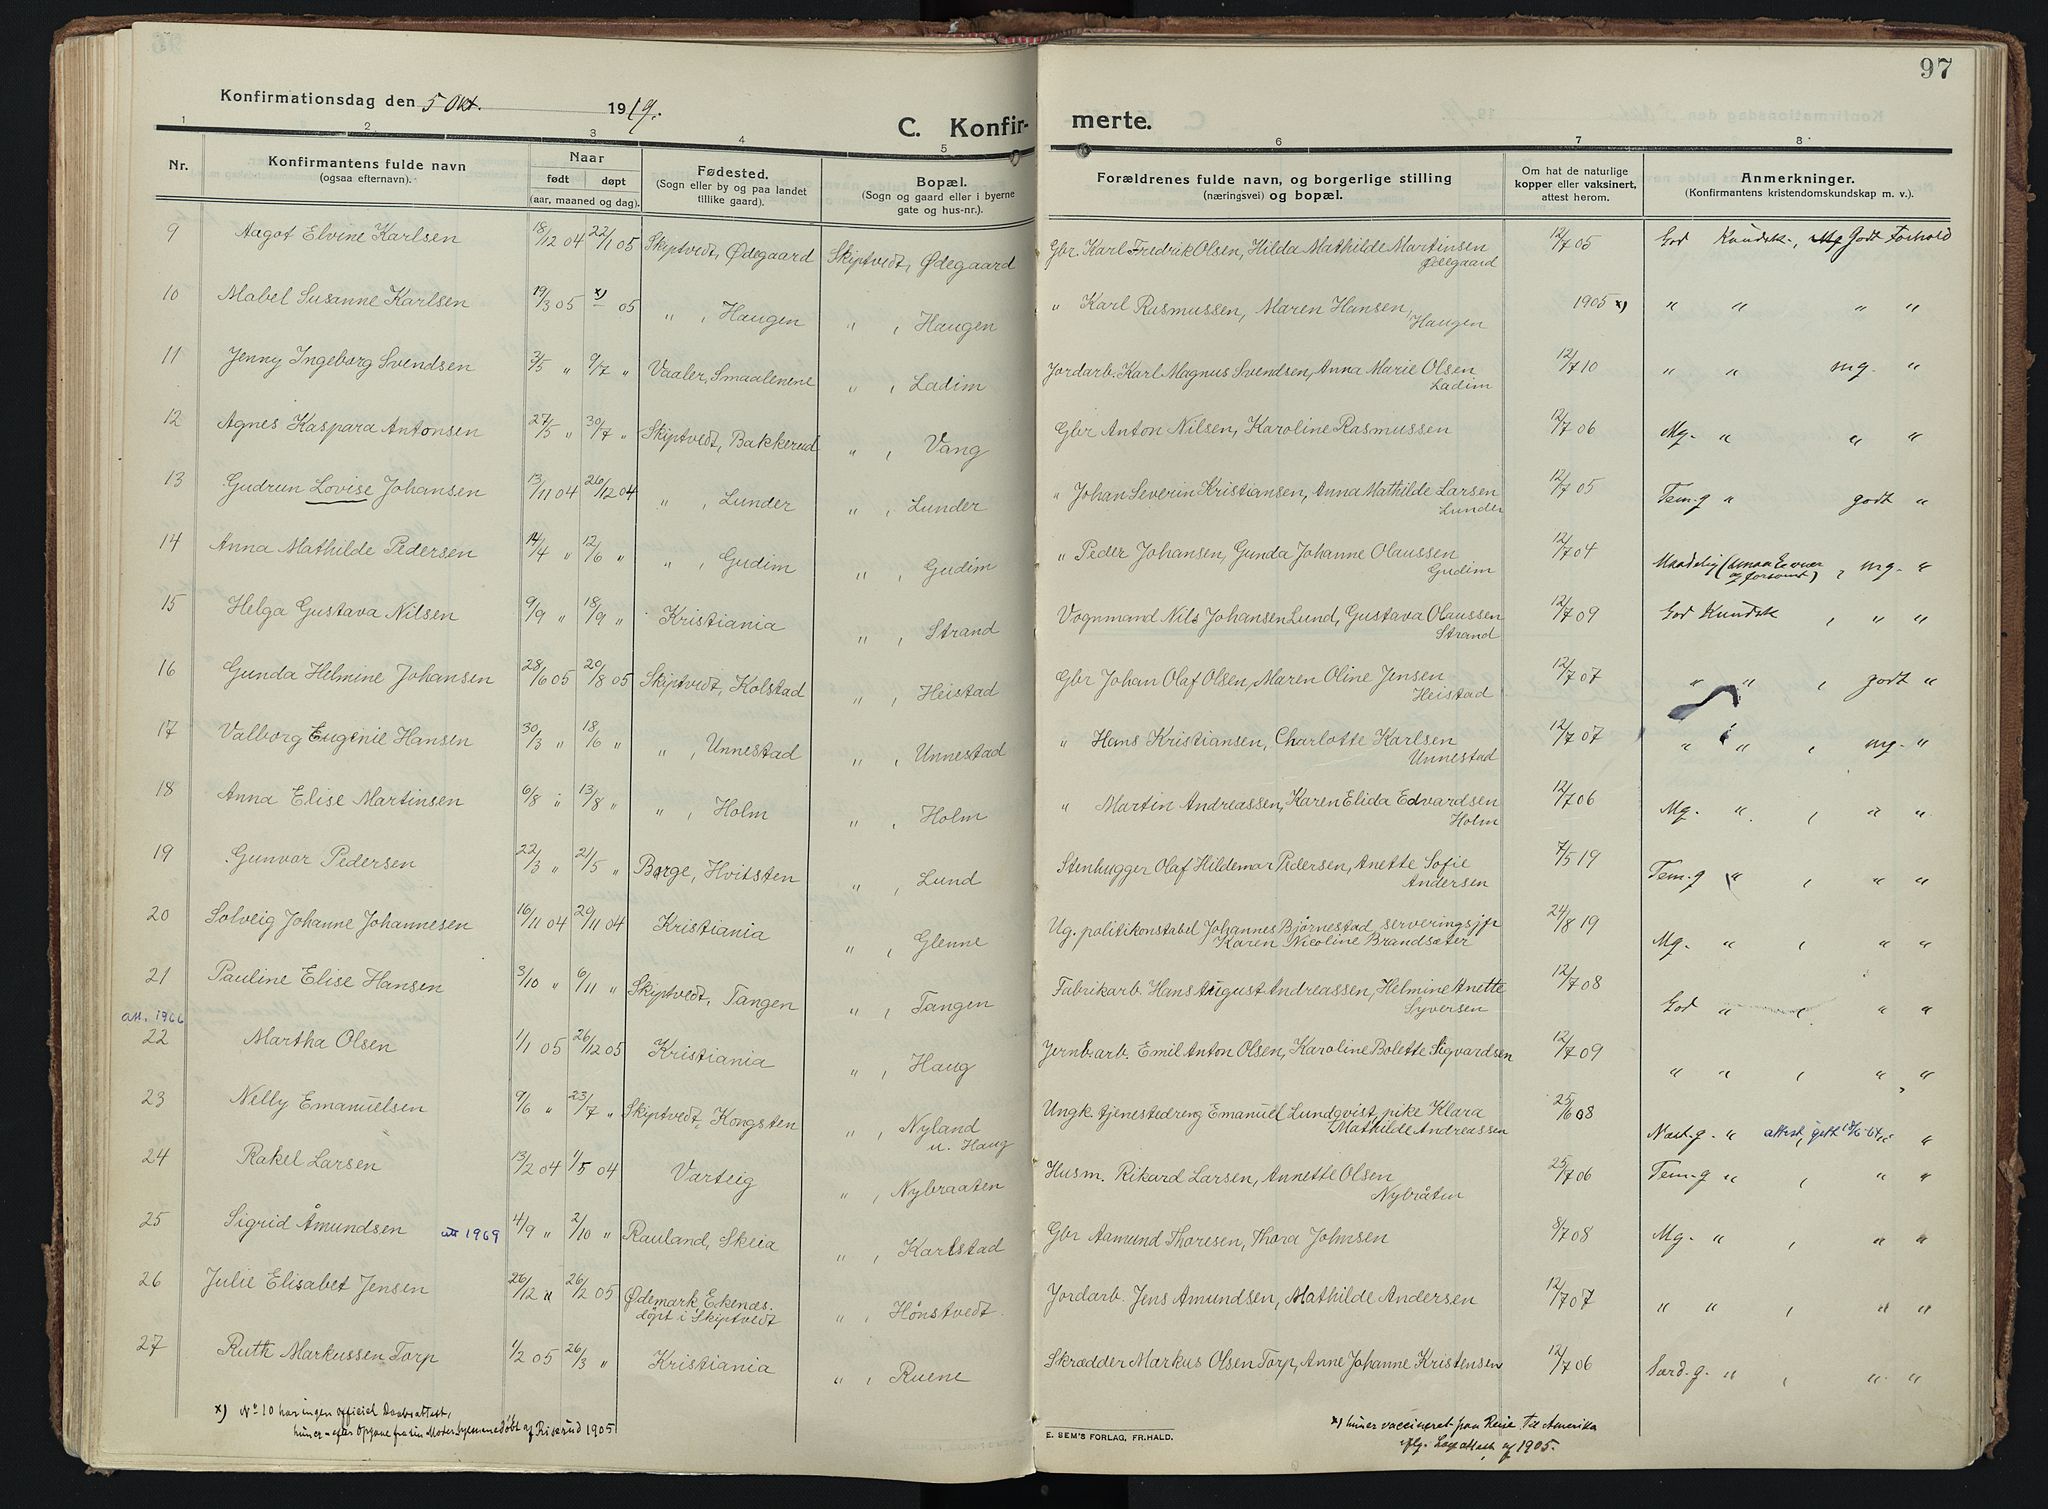 97
Konfirmationsdag den 5 Okt. 1919.
C. Konfirmerte.
1 2 3 4 5 6 7 8
Nr. Konfirmantens fulde navn (ogsaa efternavn). Naar født døpt (aar, maaned og dag). Fødested. (Sogn eller by og paa landet tillike gaard). Bopæl. (Sogn og gaard eller i byerne gate og hus-nr.). Forældrenes fulde navn, og borgerlige stilling (næringsvei) og bopæl. Om hat de naturlige kopper eller vaksinert, attest herom. Anmerkninger. (Konfirmantens kristendomskundskap m. v.).
9 Aagot Elvine Karlsen 18/12 04 22/1 05 Skiptvedt, Ødegaard Skiptvedt, Ødegaard Gbr. Karl Fredrik Olsen, Hilda Mathilde Martinsen Ødegaard 12/7 05 God Kundsk., godt Forhold
10 Mabel Susanne Karlsen 19/3 05 x) 05 " , Haugen " , Haugen " Karl Rasmussen, Maren Hansen, Haugen 1905 x) " " " "
11 Jenny Ingeborg Svendsen 3/5 " 9/7 " Vaaler, Smaalenene " , Ladim Jordarb. Karl Magnus Svendsen, Anna Marie Olsen Ladim 12/7 10 " " mg. "
12 Agnes Kaspara Antonsen 27/5 " 30/7 " Skiptvedt, Bakkerud " , Vang Gbr Anton Nilsen, Karoline Rasmussen 12/7 06 Mg. " " "
13 Gudrun Lovise Johansen 13/11 04 26/12 04 " , Lunder " , Lunder " Johan Severin Kristiansen, Anna Mathilde Larsen Lunder 12/7 05 Tem. g " godt "
14 Anna Mathilde Pedersen 14/4 " 12/6 " " , Gudim " , Gudim " Peder Johansen, Gunda Johanne Olaussen Gudim 12/7 04 Maadelig (smaa Evner og forsømt), mg. "
15 Helga Gustava Nilsen 9/9 " 18/9 " Kristiania " , Strand Vognmand Nils Johansen Lund, Gustava Olaussen Strand 12/7 09 God Kundsk , " "
16 Gunda Helmine Johansen 28/6 05 20/8 05 Skiptvedt, Kolstad " , Heistad Gbr Johan Olaf Olsen, Maren Oline Jensen Heistad 12/7 07 " " , godt "
17 Valborg Eugenie Hansen 30/3 " 18/6 " " , Unnestad " , Unnestad " Hans Kristiansen, Charlotte Karlsen Unnestad 12/7 07 " " , mg. "
18 Anna Elise Martinsen 6/8 " 13/8 " " , Holm " , Holm " Martin Andreassen, Karen Elida Edvardsen Holm 12/7 06 Mg. " , " "
19 Gunvor Pedersen 22/3 " 21/5 " Borge, Hvitsten " , Lund Stenhugger Olaf Hildemar Pedersen, Anette Sofie Andersen 7/5 19 Tem. g " , " "
20 Solveig Johanne Johannesen 16/11 04 20/11 04 Kristiania " , Glenne Ug. politikonstabel Johannes Bjørnestad, serveringsjfr Karen Nicoline Brandsæter 24/8 19 Mg. " , " "
21 Pauline Elise Hansen 3/10 " 6/11 " Skiptvedt, Tangen " , Tangen Fabrikarb. Hans August Andreassen, Helmine Anette Syversen 12/7 08 God " , " "
att. 1966
22 Martha Olsen 1/1 05 26/12 05 Kristiania " , Haug Jernbarb. Emil Anton Olsen, Karoline Bolette Sigvardsen 12/7 09 " " , " "
23 Nelly Emanuelsen 9/6 " 23/7 " Skiptvedt, Kongsten " , Nyland u. Haug Ungk. tjenestedreng Emanuel Lundqvist, pike Klara Mathilde Andreassen 25/6 08 Næst. g. " attest, gitt 18/6-64, " "
24 Rakel Larsen 13/2 04 1/5 04 Varteig " , Nybraaten Husm. Rikard Larsen, Annette Olsen Nybråten 25/7 06 Tem. g " , " "
25 Sigrid Åmundsen att 1969 4/9 " 2/10 " Rauland, Skeia " , Karlstad Gbr Aamund Thoresen, Thora Johnsen 8/7 08 Mg. " , " "
26 Julie Elisabet Jensen 26/12 " 26/2 05 Ødemark Eckenæs. døpt i Skiptvedt " , Hønstvedt. Jordarb. Jens Amundsen, Mathilde Andersen 12/7 07 " " , " "
27 Ruth Markussen Torp 1/2 05 26/3 " Kristiania " , Ruene Skrædder Markus Olsen Torp, Anne Johanne Kristensen 12/7 06 Særd. g. " , " "
x) No 10 har ingen officiel Daabsattest,
hun er efter Opgave fra sin Moder hjemmedøbt af Risrud 1905
E. SEM'S FORLAG, FR.HALD.
x) hun er vaccineret paa Reise til Amerika
ifølg. Lægeattest af 1905.